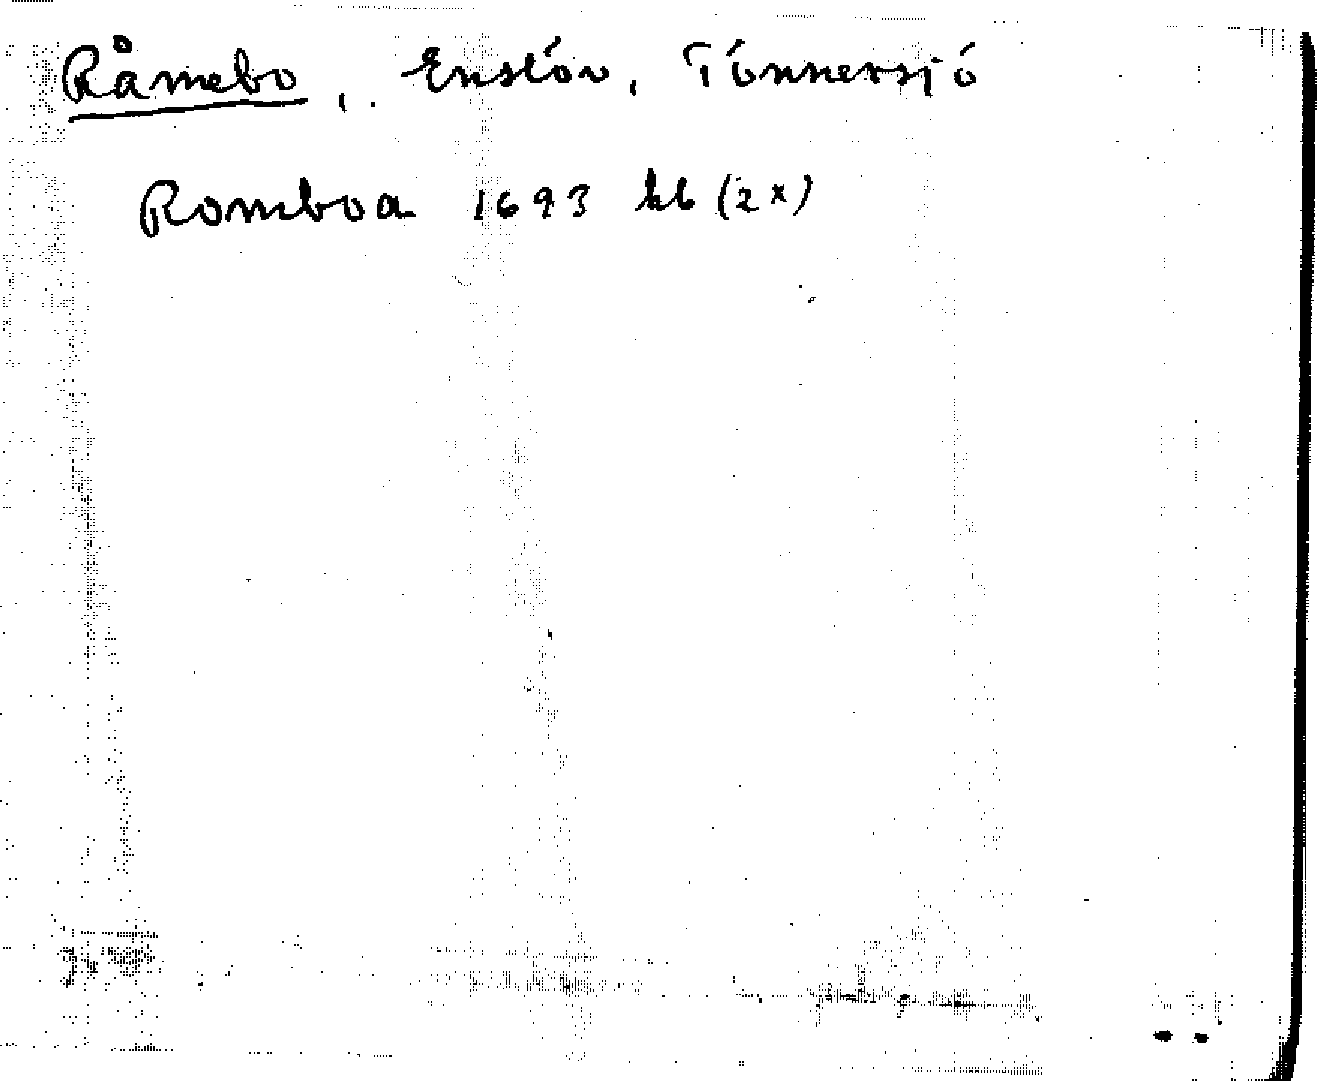 Råmebo, Enslöv, Tönnersjö
Romboa 1693 kb (2x)